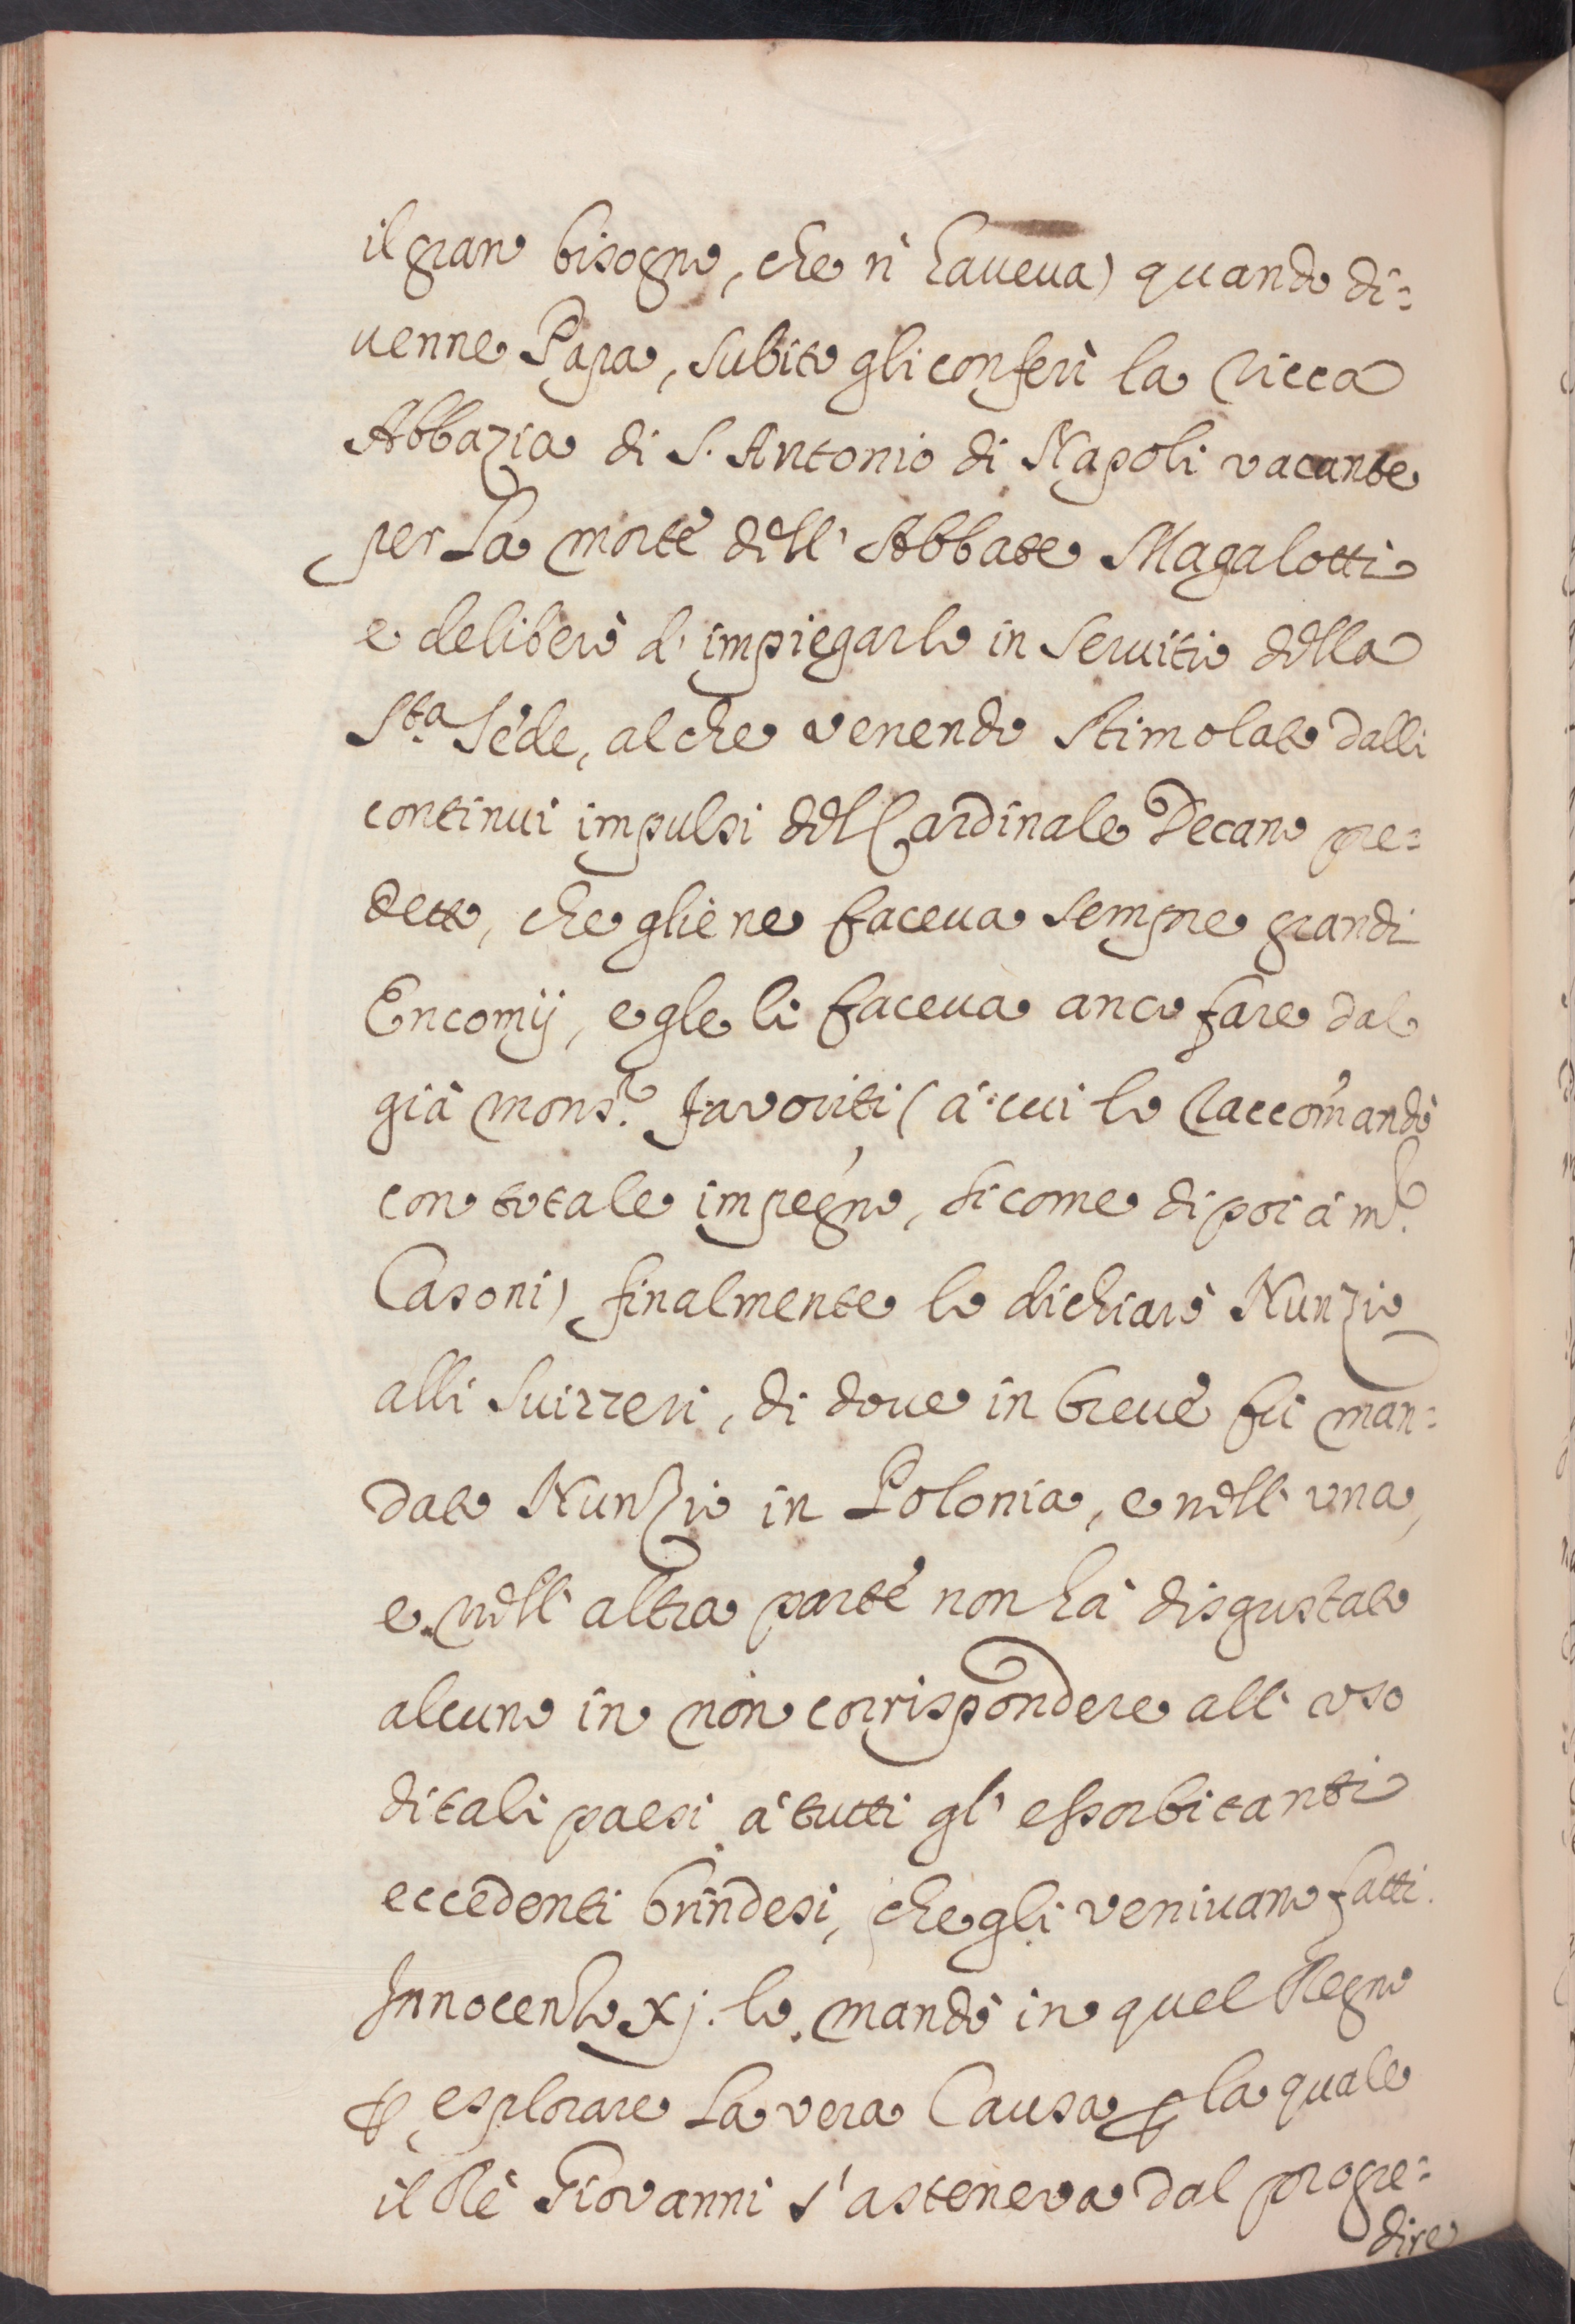 il gran bisogno, che n'haueua) quando di=
uenne Papa, subito gli conferì la ricca
Abbazia di S. Antonio di Napoli vacante
per la morte dell'Abbate Magalotti
e deliberò d'impiegarlo in Seruitio della
Sta. Sede, al che venendo stimolato dalli
continui impulsi del Cardinale Decano pre=
detto, che gliene faceua sempre grandi
Encomij, e gle li faceua anco fare dal
già Monsr. Favoriti (à cui lo raccomandò
con totale impegno, sicome di poi à mr.
Casoni) finalmente lo dichiarò Nunzio
alli Suizzeri, di doue in breue fù man=
dato Nunzio in Polonia, e nell'una,
e nell'altra parte non hà disgustato
alcuno in non corrispondere all'uso
di tali paesi à tutti gl'essorbitanti
eccedenti brindesi, che gli veniuano fatti.
Innocentio xj. lo mandò in quel Regno
p esplorare la vera Causa p la quale
il Rè Giovanni s'asteneva dal progre=
dire